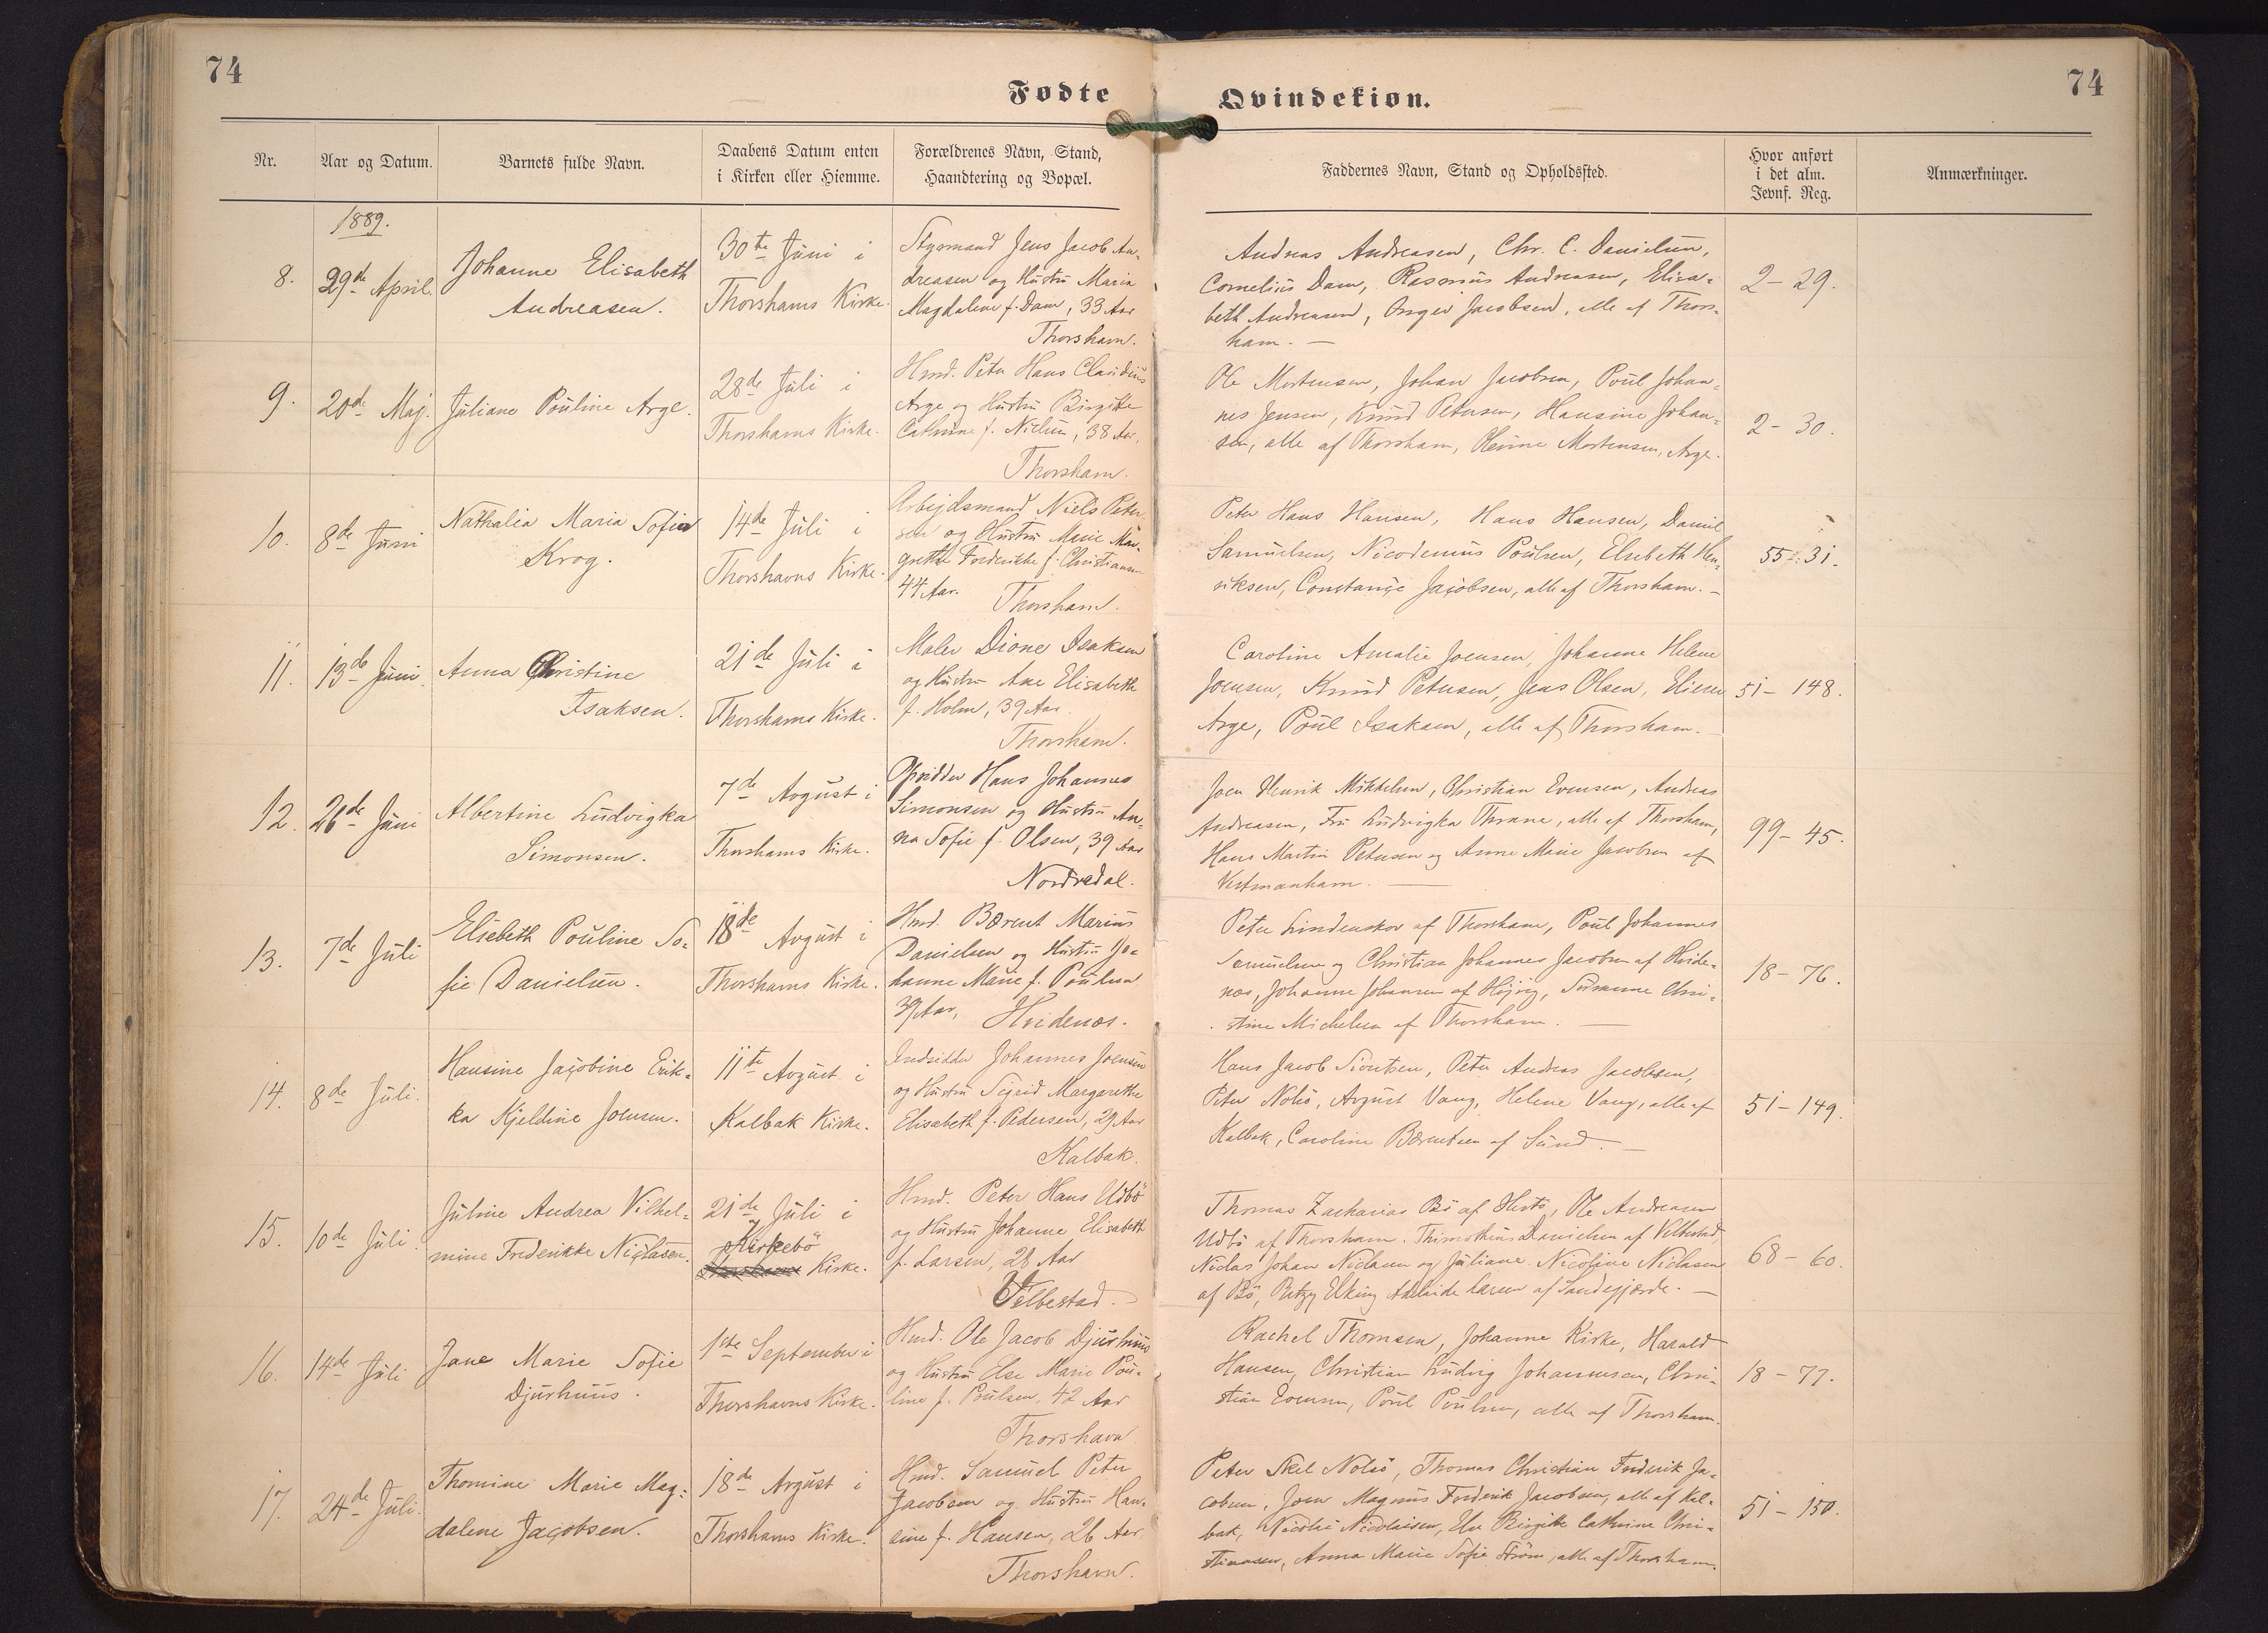 74
Fødte
Qvindekiøn.
74
Nr.
Aar og Datum.
Barnets fulde Navn.
Daabens Datum enten
i Kirken eller Hiemme.
Forældrenes Navn, Stand,
Haandtering og Bopæl.
Faddernes Navn, Stand og Opholdssted.
Hvor anført
i det alm.
Jevnf. Reg.
Anmærkninger.
1889.
8.
29de April.
Johanne Elisabeth
Andreasen.
30te Juni i
Thorshavns Kirke.
Styrmand Jens Jacob An-
dreasen og Hustru Maria
Magdalene f. Dam, 33 Aar
Thorshavn.
Andreas Andreasen, Chr. C. Danielsen,
Cornelius Dam, Rasmus Andreasen, Elisa-
beth Andreasen, Jacobsen, alle af Thors-
havn. —
2 – 29.
9.
20de Maj.
Juliane Pouline Arge.
28de Juli i
Thorshavns Kirke.
Hmd. Peter Hans Claudius
Arge og Hustru Birgitte
Cathrine f. Nielsen, 38 Aar,
Thorshavn.
Ole Mortensen, Johan Jacobsen, Poul Johan-
nes Jensen, Knud Petersen, Hansine Johan-
sen, alle af Thorshavn, Mortensen, Arge.
2 – 30.
10.
8de Juni
Nathalia Maria Sofia
Krog.
14de Juli i
Thorshavns Kirke.
Arbejdsmand Niels Peter-
sen og Hustru Marie Mar-
grethe Frederikke f. Christiansen
44 Aar.
Thorshavn.
Peter Hans Hansen, Hans Hansen, Daniel
Samuelsen, Nicodemus Poulsen, Elsebeth Hen-
riksen, Constance Jacobsen, alle af Thorshavn. —
55 – 31.
11.
13de Juni
Anna Christine
Isaksen.
21de Juli i
Thorshavns Kirke.
Maler Dione Isaksen
og Hustru Ane Elisabeth
f. Holm, 39 Aar.
Thorshavn.
Caroline Amalie Joensen, Johanne Helene
Joensen, Knud Petersen, Jens Olsen, Elieser
Arge, Poul Isaksen, alle af Thorshavn.
51 – 148.
12.
26de Juni
Albertine Ludvigka
Simonsen.
7de August i
Thorshavns Kirke.
Opsidder Hans Johannes
Simonsen og Hustru An-
na Sofie f. Olsen, 39 Aar
Nordredal.
Joen Henrik Mikkelsen, Christian Evensen, Andreas
Andreasen, Fru Ludvigka Thrane, alle af Thorshavn,
Hans Martin Petersen og Anne Marie Jacobsen af
Vestmanhavn. —
99 – 45.
13.
7de Juli
Elsebeth Pouline So-
fie Danielsen.
18de August i
Thorshavns Kirke.
Hmd. Bærent Marius
Danielsen og Hustru Jo-
hanne Marie f. Poulsen
39 Aar,
Hvidenæs.
Peter Lindenskov af Thorshavn, Poul Johannes
Samuelsen og Christian Johannes Jacobsen af Hvide-
næs, Johanne Johansen af Højvig, Susanne Chri-
stine Michelsen af Thorshavn. —
18 – 76.
14.
8de Juli.
Hansine Jacobine Erik-
ka Kjeldine Joensen.
11te August i
Kalbak Kirke.
Indsidder Johannes Joensen
og Hustru Sigrid Margarethe
Elisabeth f. Pedersen, 29 Aar
Kalbak.
Hans Jacob Sivertsen, Peter Andreas Jacobsen,
Peter Nolsø, August Vang, Helene Vang, alle af
Kalbak, Caroline Bærentsen af Sund. —
51 – 149.
15.
10de Juli.
Juline Andrea Vilhel-
mine Frederikke Niclasen.
21de Juli i
Kirkebö
Kirke.
Hmd. Peter Hans Udbö
og Hustru Johanne Elisabeth
f. Larsen, 28 Aar
Velbestad.
Thomas Zacharias Bö af Hestö, Ole Andreasen
Udbö af Thorshavn. Thimotheus Danielsen af Velbestad,
Niclas Johan Niclasen og Juliane Nicoline Niclasen
af Bö, Elking Adelaide Larsen af Sandegjærde. —
68 – 60.
16.
14de Juli
Jane Marie Sofie
Djurhuus.
1ste September i
Thorshavns Kirke.
Hmd. Ole Jacob Djurhuus
og Hustru Else Marie Pou-
line f. Poulsen, 42 Aar
Thorshavn
Rachel Thomsen, Johanne Kirke, Harald
Hansen, Christian Ludvig Johannesen, Chri-
stian Evensen, Poul Poulsen, alle af Thorshavn.
18 – 77.
17.
24de Juli.
Thomine Marie Mag-
dalene Jacobsen.
18de August i
Thorshavns Kirke.
Hmd. Samuel Peter
Jacobsen og Hustru Han-
sine f. Hansen, 26 Aar,
Thorshavn.
Peter Skeel Nolsö, Thomas Christian Frederik Ja-
cobsen, Joen Magnus Frederik Jacobsen, alle af Kal-
bak, Nicolai Nicolaisen, Else Birgitte Cathrine Chri-
stiansen, Anna Marie Sofie Ström, alle af Thorshavn.
51 – 150.